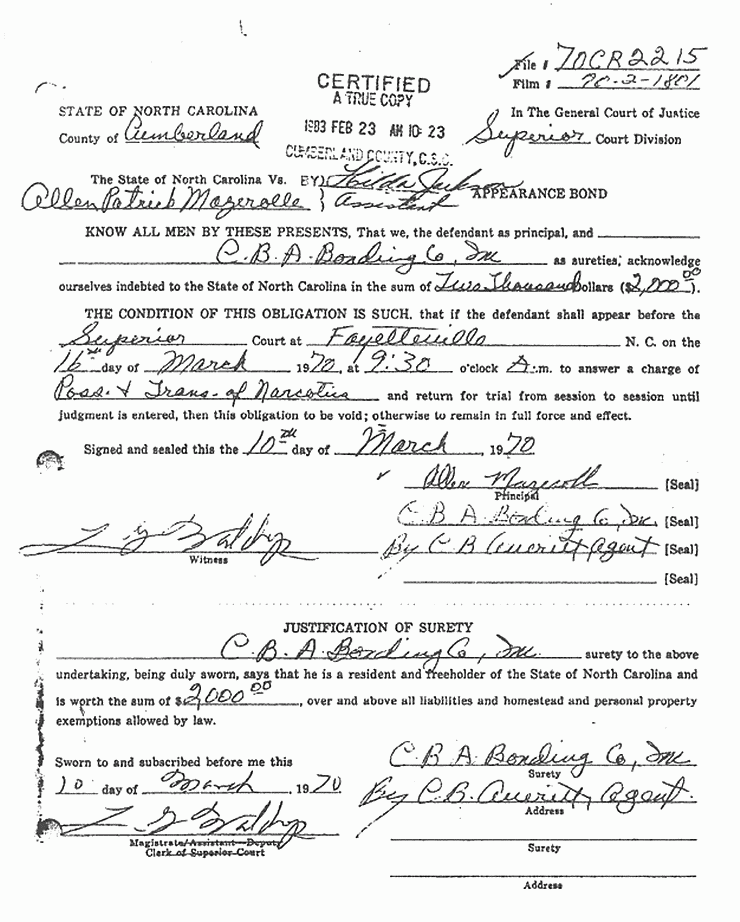 File # 70CR2215
Film # 70-2-1801
CERTIFIED
A TRUE COPY
STATE OF NORTH CAROLINA
In The General Court of Justice
1983 FEB 23 AM 10:23
County of Cumberland
Superior Court Division
CUMBERLAND COUNTY, C.S.C.
The State of North Carolina Vs. BY) Hilda Jackson
Allen Patrick Mazerolle } Assistant APPEARANCE BOND
KNOW ALL MEN BY THESE PRESENTS, That we, the defendant as principal, and
C. B. A. Bonding Co, Inc as sureties, acknowledge
ourselves indebted to the State of North Carolina in the sum of Two Thousand Dollars ($2,000.00).
THE CONDITION OF THIS OBLIGATION IS SUCH, that if the defendant shall appear before the
Superior Court at Fayetteville N. C. on the
16th day of March 1970, at 9:30 o'clock A.m. to answer a charge of
Poss. & Trans. of Narcotics and return for trial from session to session until
judgment is entered, then this obligation to be void; otherwise to remain in full force and effect.
Signed and sealed this the 10th day of March, 1970
Allen [Seal]
Principal
C B A Bonding Co, Inc. [Seal]
By C B Averitt Agent [Seal]
Witness
[Seal]
JUSTIFICATION OF SURETY
C. B. A. Bonding Co, Inc. surety to the above
undertaking, being duly sworn, says that he is a resident and freeholder of the State of North Carolina and
is worth the sum of $2000.00, over and above all liabilities and homestead and personal property
exemptions allowed by law.
Sworn to and subscribed before me this
C B A Bonding Co, Inc
Surety
10 day of March, 1970
By C.B. Averitt, Agent.
Address
Magistrate/Assistant—Deputy
Clerk of Superior Court
Surety
Address